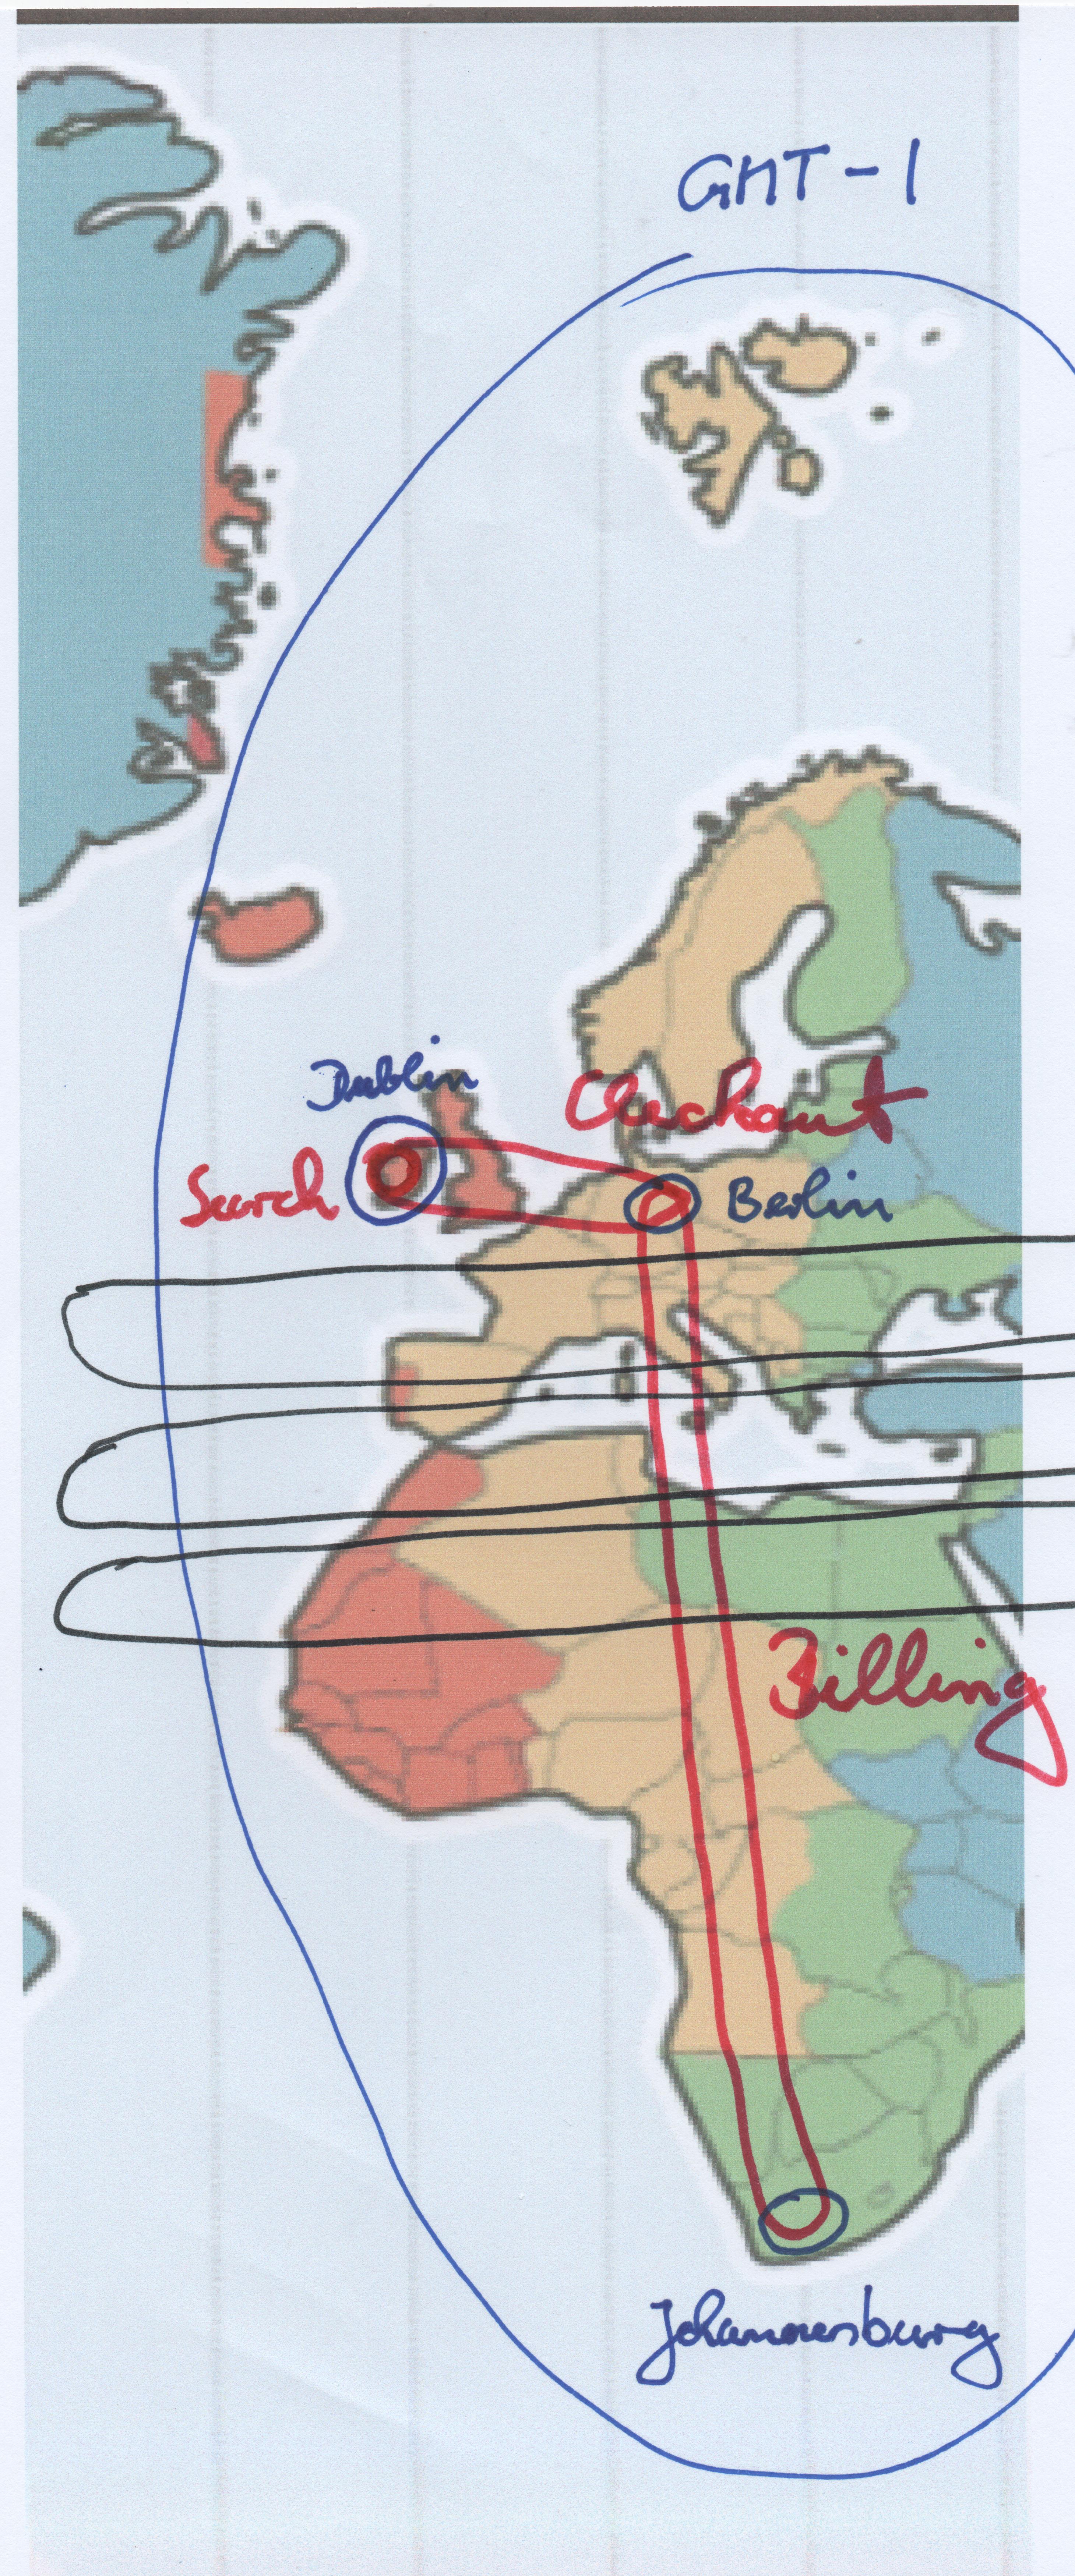 GMT-1
Dublin
Checkout
Search
Berlin
Billing
Johannesburg